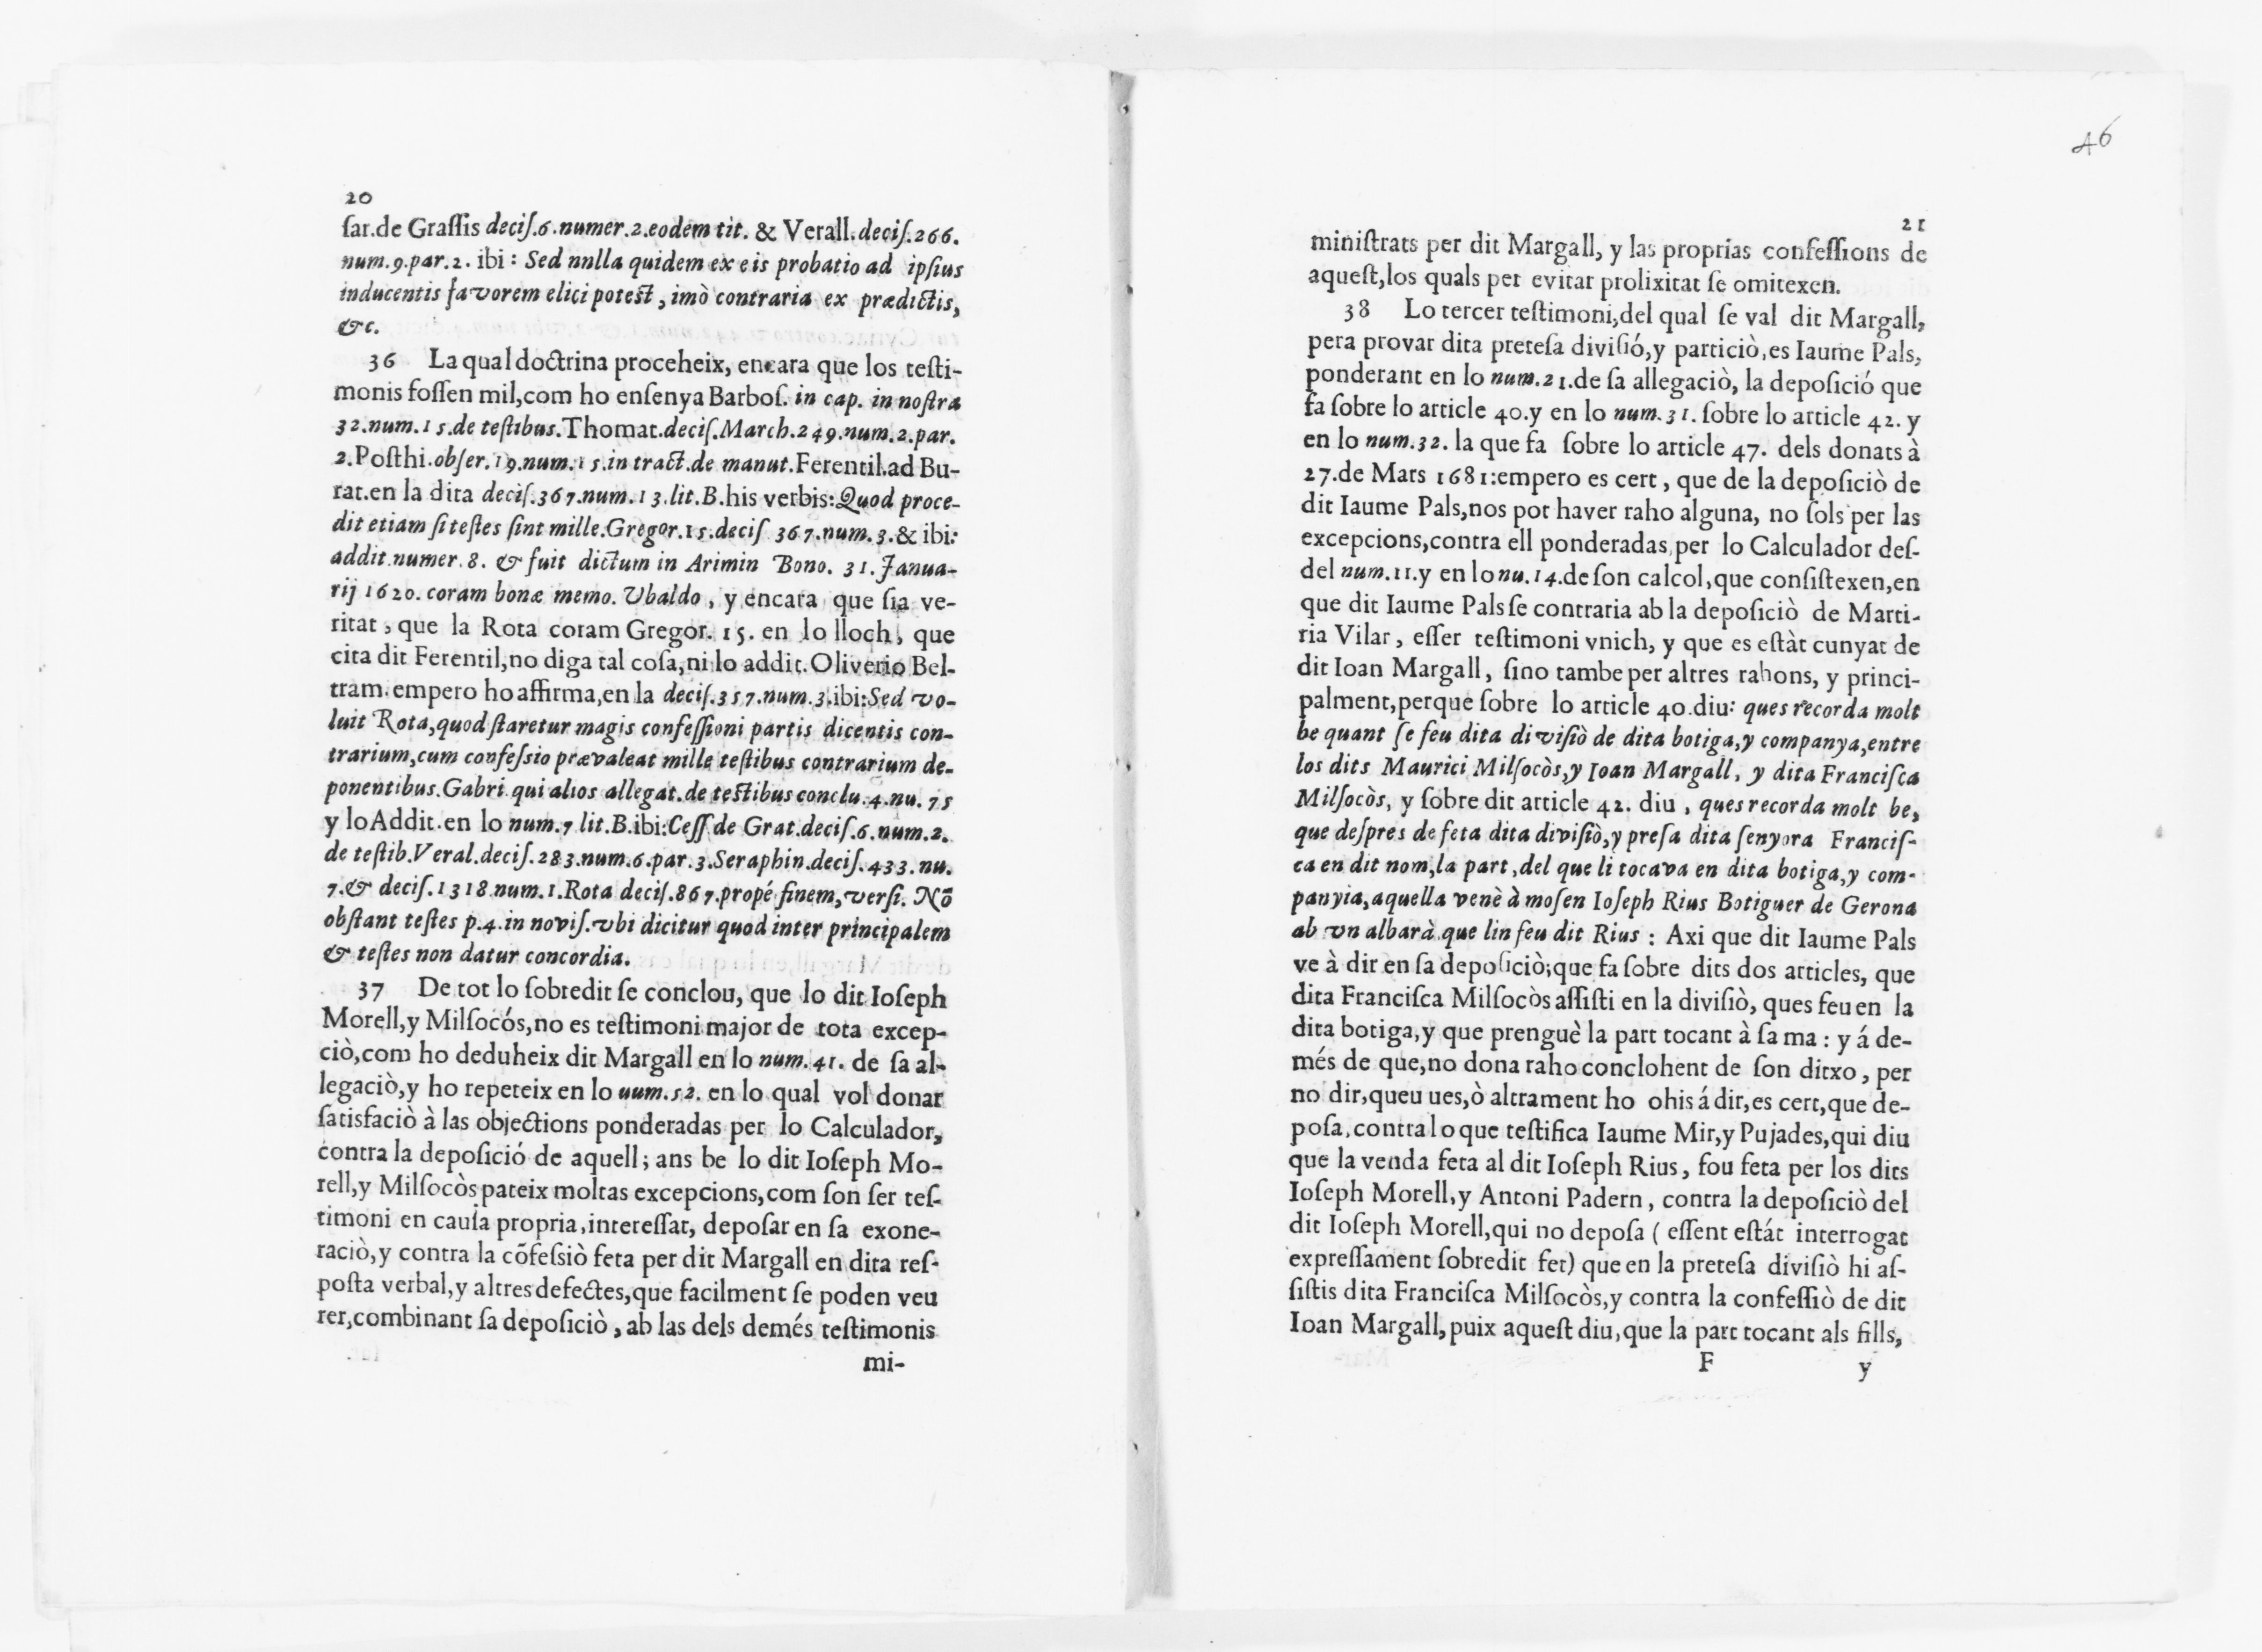 20
ſar.de Graſſis deciſ.6.numer.2.eodem tit. & Verall.deciſ.266.
num.9.par.2. ibi : Sed nnlla quidem ex eis probatio ad ipſius
inducentis favorem elici poteſt, imò contraria ex prædictis,
&c.
36 La qual doctrina proceheix, encara que los teſti-
monis foſſen mil,com ho enſenya Barboſ. in cap. in noſtra
32.num.15.de teſtibus.Thomat.deciſ.March.249.num.2.par.
2.Poſthi.obſer.19.num.15.in tract.de manut.Ferentil.ad Bu-
rat.en la dita deciſ.367.num.13.lit.B.his verbis:Quod proce-
dit etiam ſi teſtes ſint mille.Gregor.15.deciſ 367.num.3.& ibi:
addit.numer.8. & fuit dictum in Arimin Bono. 31. Janua-
rij 1620. coram bonæ memo. Vbaldo, y encara que ſia ve-
ritat, que la Rota coram Gregor. 15. en lo lloch, que
cita dit Ferentil,no diga tal coſa,ni lo addit.Oliverio Bel-
tram.empero ho affirma,en la deciſ.357.num.3.ibi:Sed vo-
luit Rota,quod ſtaretur magis confeſſioni partis dicentis con-
trarium,cum confeſsio prævaleat mille teſtibus contrarium de-
ponentibus.Gabri.qui alios allegat.de teſtibus conclu.4.nu.75
y lo Addit.en lo num.7 lit.B.ibi:Ceſſ de Grat.deciſ.6.num.2.
de teſtib.Veral.deciſ.283.num.6.par.3.Seraphin.deciſ.433.nu.
7.& deciſ.1318.num.1.Rota deciſ.867.propé finem,verſi. Nõ
obſtant teſtes p.4.in noviſ.vbi dicitur quod inter principalem
& teſtes non datur concordia.
37 De tot lo ſobredit ſe conclou, que lo dit Ioſeph
Morell,y Milſocós,no es teſtimoni major de tota excep-
ciò,com ho deduheix dit Margall en lo num.41. de ſa al-
legaciò,y ho repeteix en lo uum.52. en lo qual vol donar
ſatisfaciò à las objections ponderadas per lo Calculador,
contra la depoſició de aquell; ans be lo dit Ioſeph Mo-
rell,y Milſocòs pateix moltas excepcions,com ſon ſer teſ-
timoni en cauſa propria,intereſſat, depoſar en ſa exone-
raciò,y contra la cõfeſsiò feta per dit Margall en dita reſ-
poſta verbal,y altres defectes,que facilment ſe poden veu
rer,combinant ſa depoſiciò, ab las dels demés teſtimonis
mi-
46
21
miniſtrats per dit Margall, y las proprias confeſſions de
aqueſt,los quals per evitar prolixitat ſe omitexen.
38 Lo tercer teſtimoni,del qual ſe val dit Margall,
pera provar dita preteſa diviſió,y particiò,es Iaume Pals,
ponderant en lo num.21.de ſa allegaciò, la depoſició que
fa ſobre lo article 40.y en lo num.31. ſobre lo article 42. y
en lo num.32. la que fa ſobre lo article 47. dels donats à
27.de Mars 1681:empero es cert, que de la depoſiciò de
dit Iaume Pals,nos pot haver raho alguna, no ſols per las
excepcions,contra ell ponderadas,per lo Calculador deſ-
del num.11.y en lo nu.14.de ſon calcol,que conſiſtexen,en
que dit Iaume Pals ſe contraria ab la depoſiciò de Marti-
ria Vilar, eſſer teſtimoni vnich, y que es eſtàt cunyat de
dit Ioan Margall, ſino tambe per altres rahons, y princi-
palment,perque ſobre lo article 40.diu: ques recorda molt
be quant ſe feu dita diviſiò de dita botiga,y companya,entre
los dits Maurici Milſocòs,y Ioan Margall, y dita Franciſca
Milſocòs, y ſobre dit article 42. diu, ques recorda molt be,
que deſpres de feta dita diviſiò,y preſa dita ſenyora Franciſ-
ca en dit nom,la part,del que li tocava en dita botiga,y com-
panyia,aquella venè à moſen Ioſeph Rius Botiguer de Gerona
ab vn albarà que lin feu dit Rius : Axi que dit Iaume Pals
ve à dir en ſa depoſiciò;que fa ſobre dits dos articles, que
dita Franciſca Milſocòs aſſiſti en la diviſiò, ques feu en la
dita botiga,y que prenguè la part tocant à ſa ma : y á de-
més de que,no dona raho conclohent de ſon ditxo, per
no dir,queu ues,ò altrament ho ohis á dir,es cert,que de-
poſa,contra lo que teſtifica Iaume Mir,y Pujades,qui diu
que la venda feta al dit Ioſeph Rius, fou feta per los dits
Ioſeph Morell,y Antoni Padern, contra la depoſiciò del
dit Ioſeph Morell,qui no depoſa ( eſſent eſtát interrogat
expreſſament ſobredit fet) que en la preteſa diviſiò hi aſ-
ſiſtis dita Franciſca Milſocòs,y contra la confeſſiò de dit
Ioan Margall, puix aqueſt diu,que la part tocant als fills,
F y